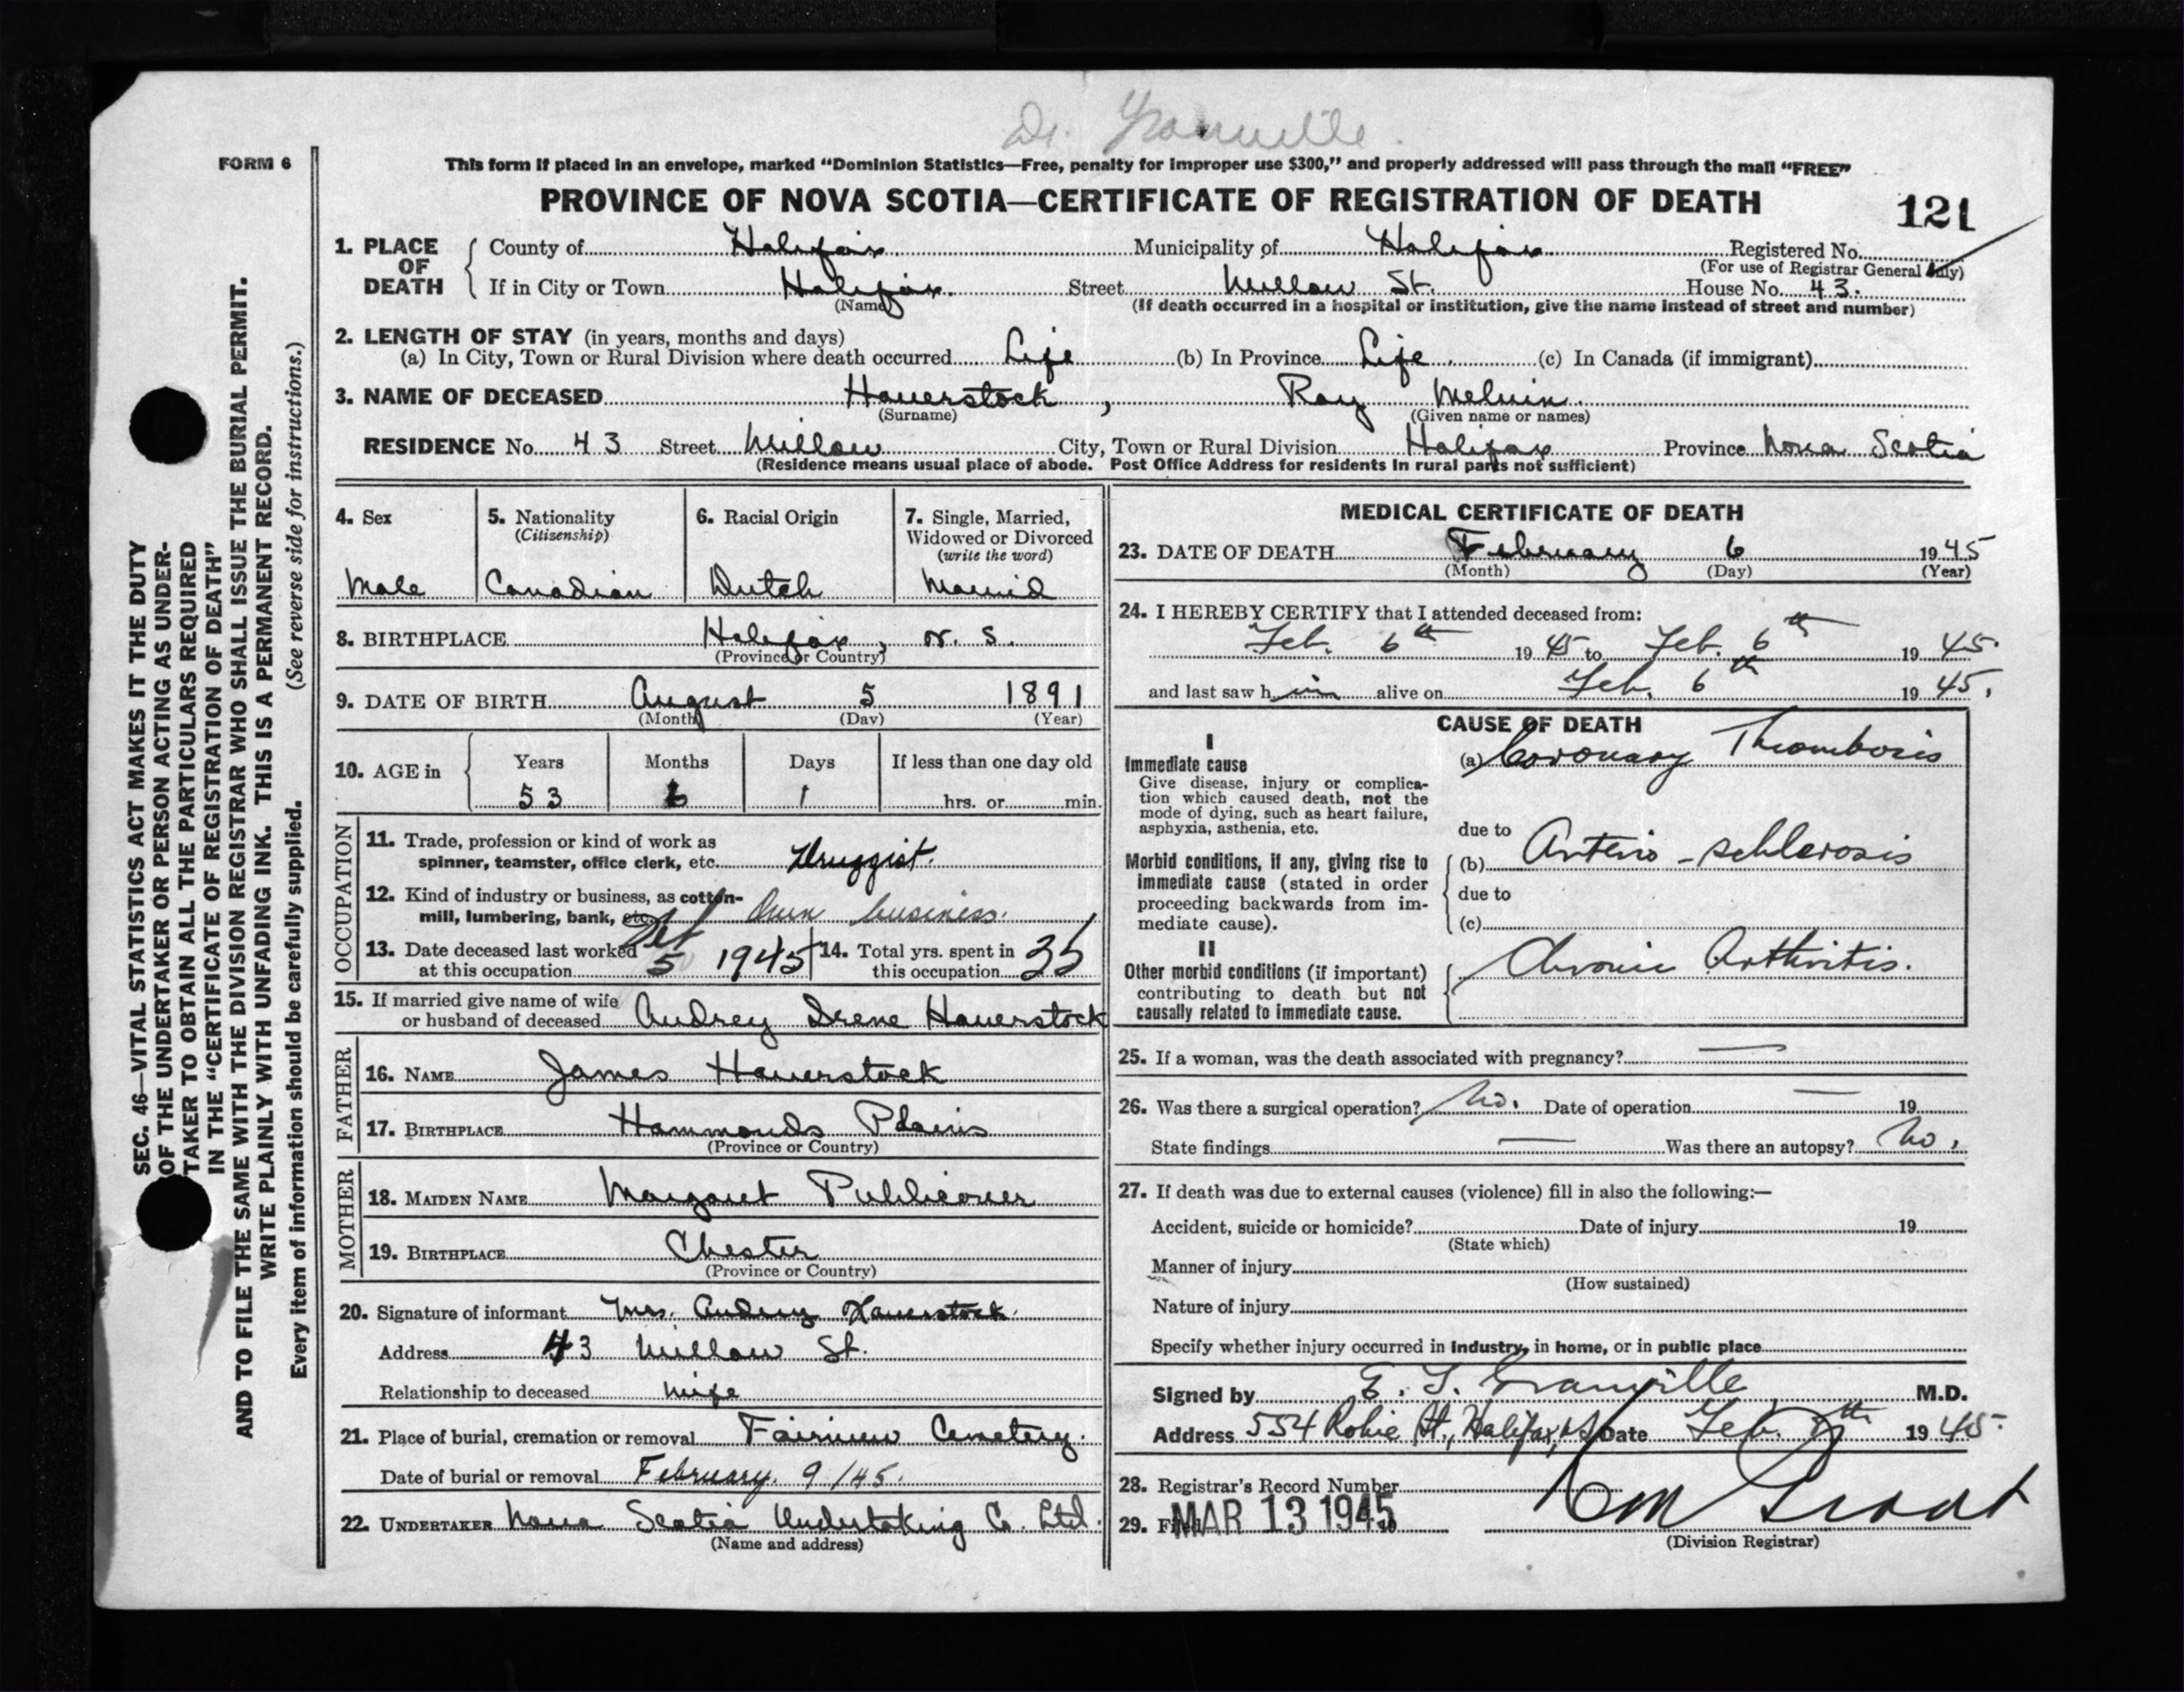 Dr. Granville
FORM 6
This form if placed in an envelope, marked “Dominion Statistics—Free, penalty for improper use $300,” and properly addressed will pass through the mail “FREE”
PROVINCE OF NOVA SCOTIA—CERTIFICATE OF REGISTRATION OF DEATH
121
1. PLACE OF DEATH
County of Halifax Municipality of Halifax Registered No.
(For use of Registrar General Only)
If in City or Town Halifax Street Willow St. House No. 43.
(Name) (If death occurred in a hospital or institution, give the name instead of street and number)
2. LENGTH OF STAY (in years, months and days)
(a) In City, Town or Rural Division where death occurred Life (b) In Province Life (c) In Canada (if immigrant)
3. NAME OF DECEASED Haverstock, Ray Melvin.
(Surname) (Given name or names)
RESIDENCE No. 43 Street Willow City, Town or Rural Division Halifax Province Nova Scotia
(Residence means usual place of abode. Post Office Address for residents in rural parts not sufficient)
4. Sex
Male
5. Nationality
(Citizenship)
Canadian
6. Racial Origin
Dutch
7. Single, Married,
Widowed or Divorced
(write the word)
Married
8. BIRTHPLACE Halifax, N. S.
(Province or Country)
9. DATE OF BIRTH August 5 1891
(Month) (Day) (Year)
10. AGE in
Years Months Days If less than one day old
53 6 1 hrs. or min.
OCCUPATION
11. Trade, profession or kind of work as
spinner, teamster, office clerk, etc. Druggist.
12. Kind of industry or business, as cotton-
mill, lumbering, bank, etc. Own business.
13. Date deceased last worked
at this occupation 5 1945
14. Total yrs. spent in
this occupation 35
15. If married give name of wife
or husband of deceased Audrey Irene Haverstock
FATHER
16. NAME James Haverstock
17. BIRTHPLACE Hammonds Plains
(Province or Country)
MOTHER
18. MAIDEN NAME Margaret Publicover
19. BIRTHPLACE Chester
(Province or Country)
20. Signature of informant Mrs. Audrey Haverstock.
Address 43 Willow St.
Relationship to deceased wife
21. Place of burial, cremation or removal Fairview Cemetery.
Date of burial or removal February. 9/45.
22. UNDERTAKER Nova Scotia Undertaking Co. Ltd.
(Name and address)
MEDICAL CERTIFICATE OF DEATH
23. DATE OF DEATH February 6 1945
(Month) (Day) (Year)
24. I HEREBY CERTIFY that I attended deceased from:
Feb. 6th 1945 to Feb. 6th 1945.
and last saw him alive on Feb. 6th 1945.
CAUSE OF DEATH
I
Immediate cause
Give disease, injury or complica-
tion which caused death, not the
mode of dying, such as heart failure,
asphyxia, asthenia, etc.
(a) Coronary Thrombosis
due to
Morbid conditions, if any, giving rise to
immediate cause (stated in order
proceeding backwards from im-
mediate cause).
(b) Arterio-schlerosis
due to
(c)
II
Other morbid conditions (if important)
contributing to death but not
causally related to immediate cause.
Chronic Arthritis.
25. If a woman, was the death associated with pregnancy? —
26. Was there a surgical operation? No. Date of operation — 19
State findings — Was there an autopsy? No.
27. If death was due to external causes (violence) fill in also the following:—
Accident, suicide or homicide? Date of injury 19
(State which)
Manner of injury
(How sustained)
Nature of injury
Specify whether injury occurred in industry, in home, or in public place
Signed by E. T. Granville M.D.
Address 554 Robie St., Halifax, NS Date Feb. 1945.
28. Registrar's Record Number
29. Filed MAR 13 1945 19
(Division Registrar)
SEC. 46—VITAL STATISTICS ACT MAKES IT THE DUTY
OF THE UNDERTAKER OR PERSON ACTING AS UNDER-
TAKER TO OBTAIN ALL THE PARTICULARS REQUIRED
IN THE “CERTIFICATE OF REGISTRATION OF DEATH”
AND TO FILE THE SAME WITH THE DIVISION REGISTRAR WHO SHALL ISSUE THE BURIAL PERMIT.
WRITE PLAINLY WITH UNFADING INK. THIS IS A PERMANENT RECORD.
(See reverse side for instructions.)
Every item of information should be carefully supplied.